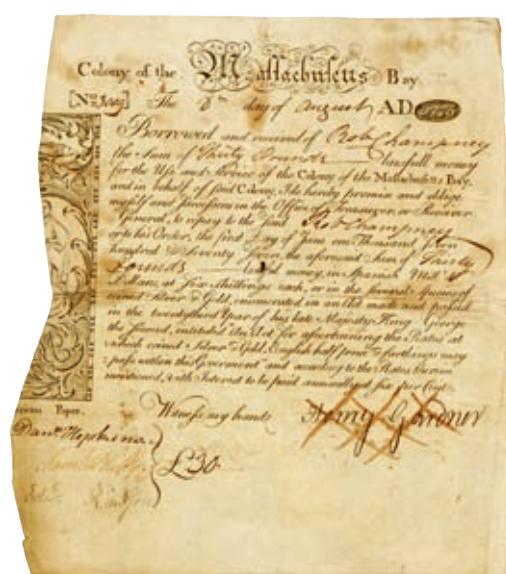 Colony of the Massachusetts Bay.
The 8th day of August AD 1775
Borrowed and received of Rob Champney
the Sum of Thirty Pounds lawfull money
for the Use and Service of the Colony of the Massachusetts Bay,
and in behalf of said Colony, I do hereby promise and oblige
myself and successors in the Office of Treasurer, or Receiver
General, to repay to the said Rob Champney
or to his Order, the first Day of June one Thousand seven
hundred & Seventy Seven, the aforesaid Sum of Thirty
Pounds lawful money, in Spanish Mill'd
Dollars, at Six Shillings each, or in the several Species of
coined Silver & Gold, enumerated in an Act made and passed
in the twenty third Year of his late Majesty King George
the Second, intitled An Act for ascertaining the Rates at
which coined Silver & Gold, English half pence & farthings may
pass within this Government and according to the Rates therein
mentioned, with Interest to be paid annually at six per Cent.
Witness my hand Henry Gardner
Paper.
Hopkins
£30